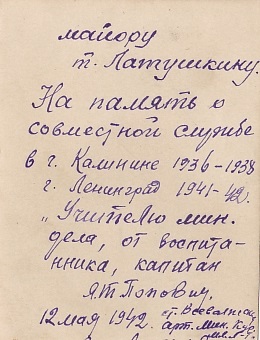 майору
т. Латушкину.
На память о
совместной службе
в г. Калинине 1936-1938
г. Ленинград 1941-42.
„Учителю мин.
дела, от воспита-
нника, капитан
Я.Т. Попович.
12 мая 1942. ст. Всеволжск.
арт. мин. Кур.